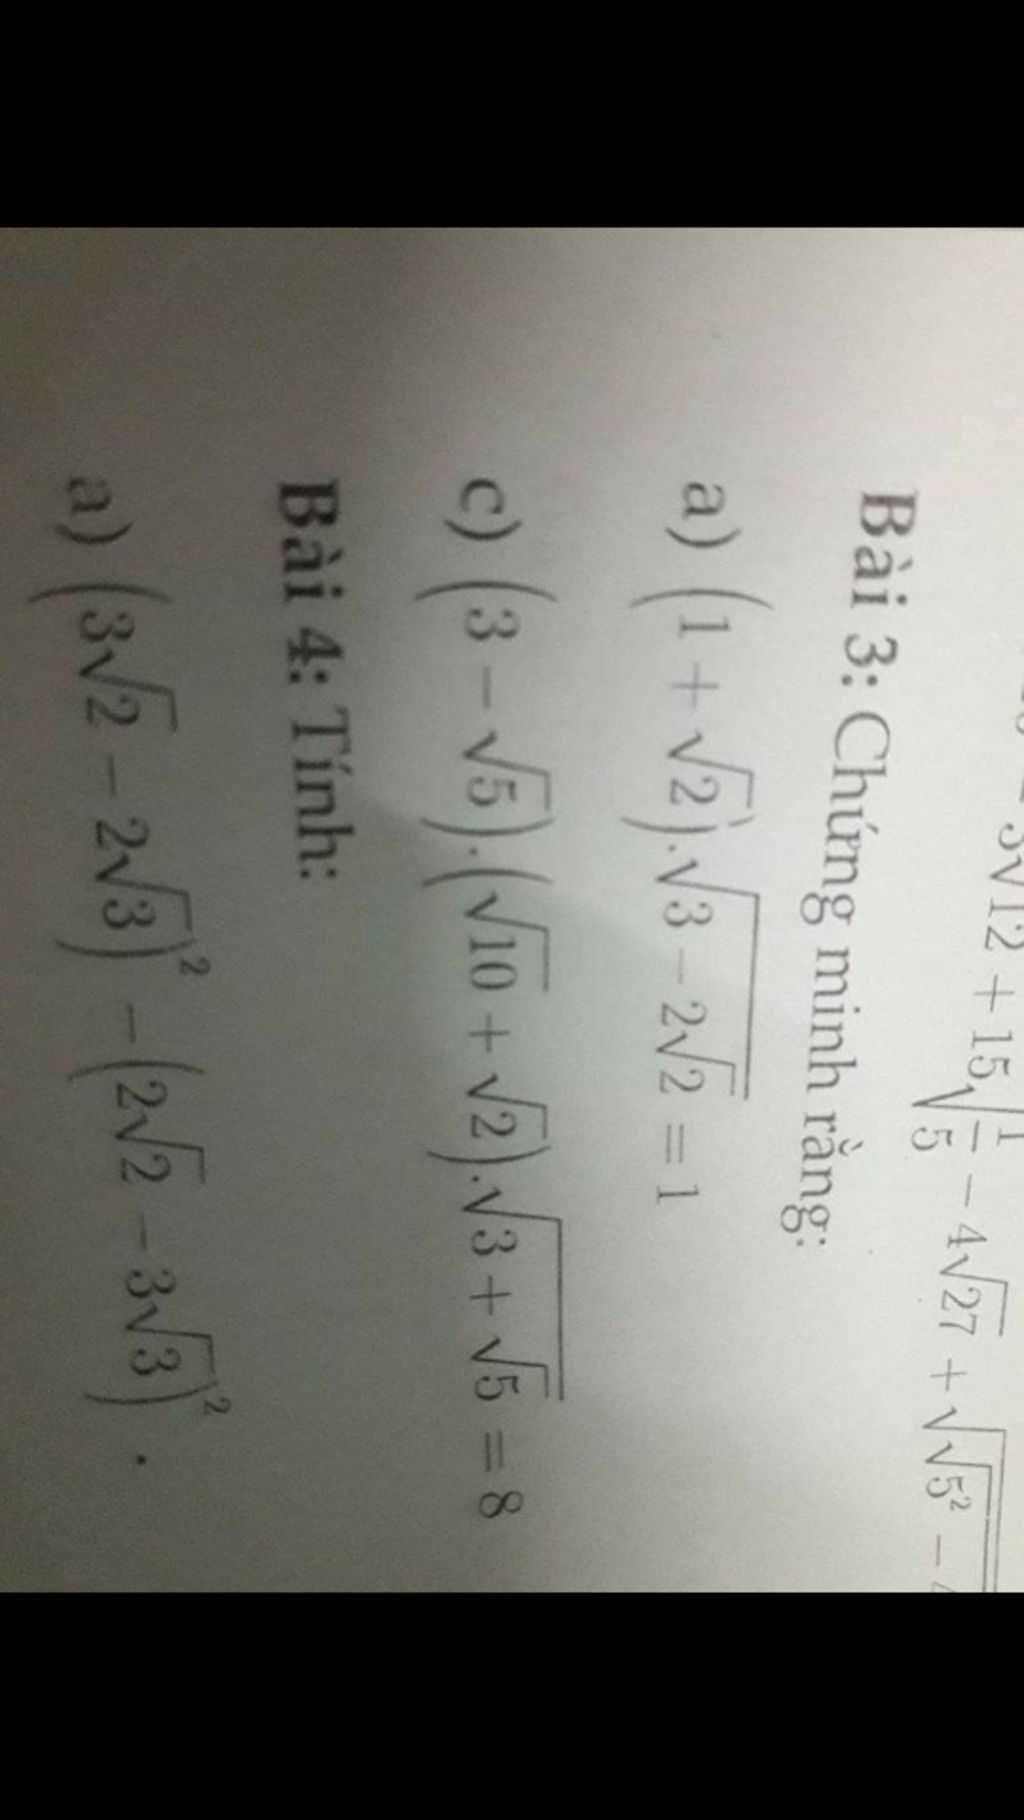 3√12 + 15√(1/5) − 4√27 + √(√5² −
Bài 3: Chứng minh rằng:
a) (1 + √2).√(3 − 2√2) = 1
c) (3 − √5).(√10 + √2).√(3 + √5) = 8
Bài 4: Tính:
a) (3√2 − 2√3)² − (2√2 − 3√3)² .